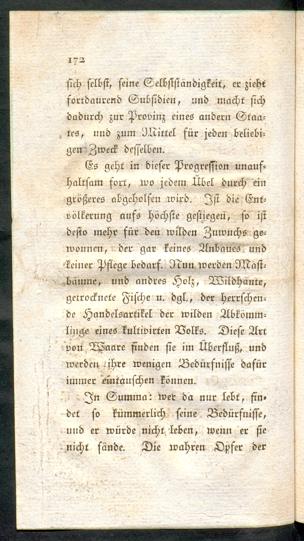 172
sich selbst, seine Selbstständigkeit, er zieht
fortdaurend Subsidien, und macht sich
dadurch zur Provinz eines andern Staa-
tes, und zum Mittel für jeden beliebi-
gen Zweck desselben.
Es geht in dieser Progression unauf-
haltsam fort, wo jedem Übel durch ein
größeres abgeholfen wird. Ist die Ent-
völkerung aufs höchste gestiegen, so ist
desto mehr für den wilden Zuwuchs ge-
wonnen, der gar keines Anbaues und
keiner Pflege bedarf. Nun werden Mast-
bäume, und andres Holz, Wildhäute,
getrocknete Fische u. dgl., der herrschen-
de Handelsartikel der wilden Abkömm-
linge eines kultivirten Volks. Diese Art
von Waare finden sie im Überfluß, und
werden ihre wenigen Bedürfnisse dafür
immer eintauschen können.
In Summa: wer da nur lebt, fin-
det so kümmerlich seine Bedürfnisse,
und er würde nicht leben, wenn er sie
nicht fände. Die wahren Opfer der